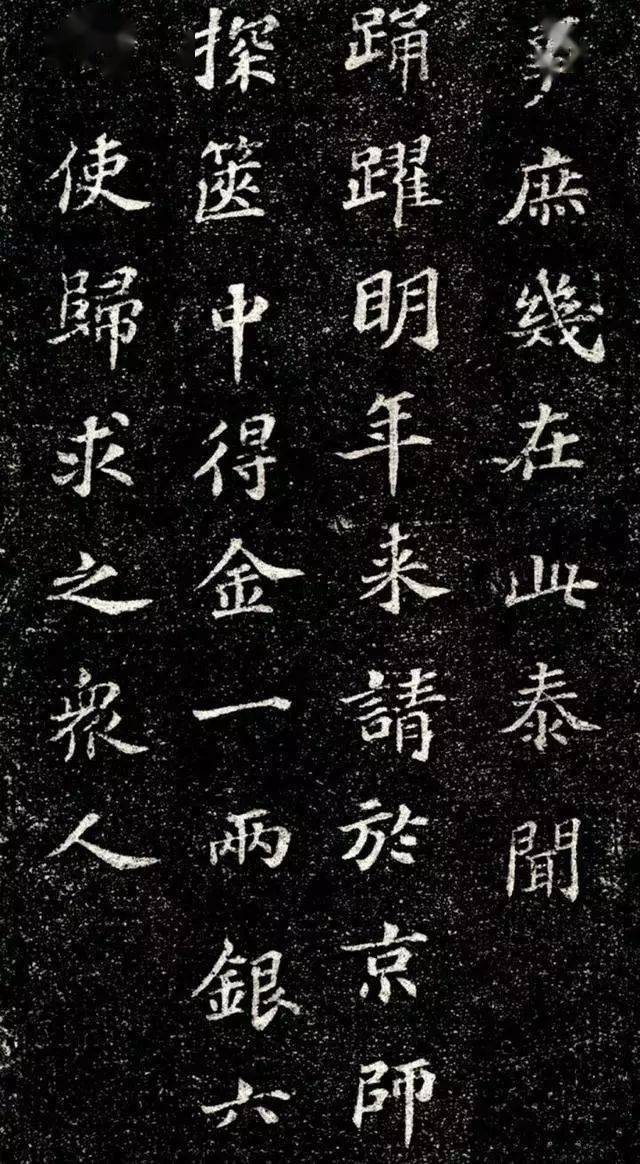 庶幾在此泰聞
踊躍明年来請於京師
探篋中得金一兩銀六
使歸求之衆人